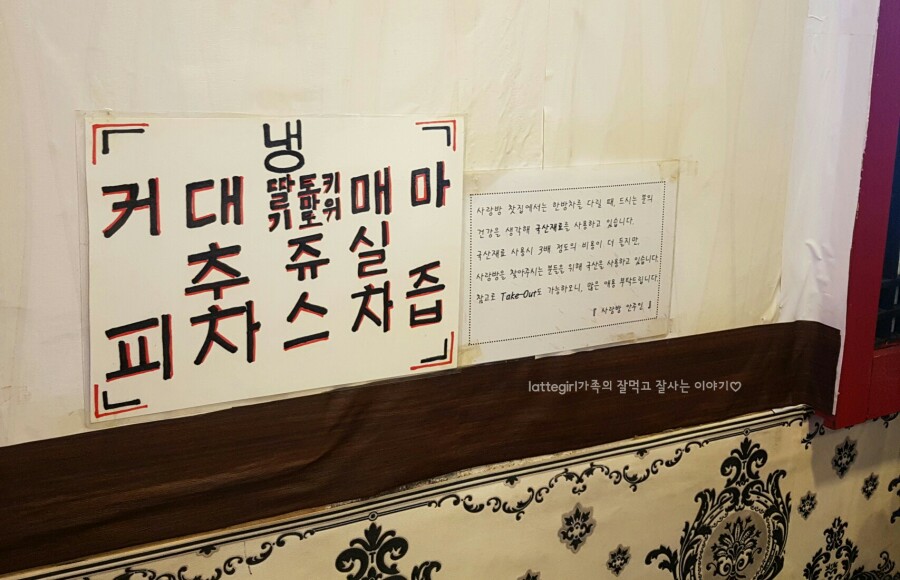 커피
대추차
냉 딸기 토마토 키위 쥬스
매실차
마즙
사랑방 찻집에서는 한방차를 다릴 때, 드시는 분의
건강을 생각해 국산재료를 사용하고 있습니다.
국산재료 사용시 3배 정도의 비용이 더 들지만,
사랑방을 찾아주시는 분들을 위해 국산을 사용하고 있습니다.
참고로 Take-Out도 가능하오니, 많은 애용 부탁드립니다.
『 사랑방 안주인 』
lattegirl가족의 잘먹고 잘사는 이야기♡